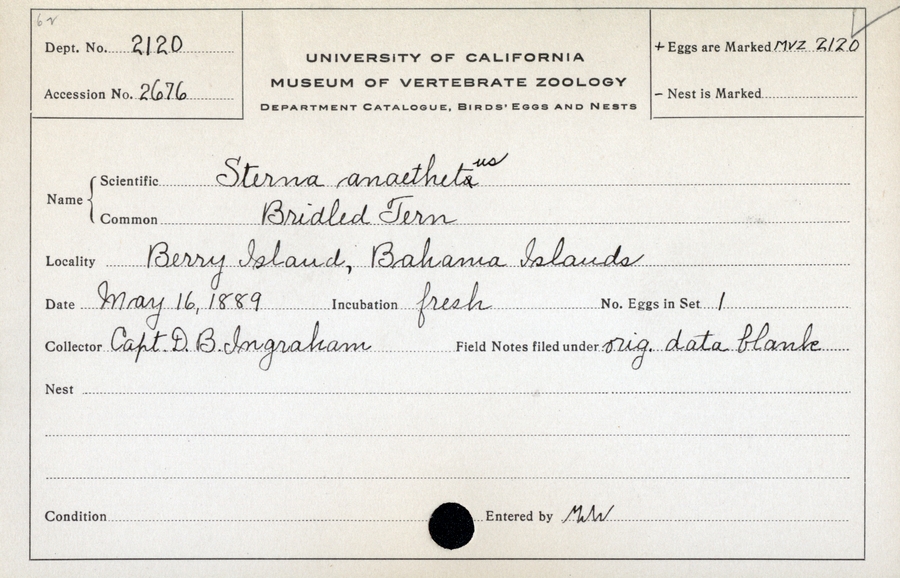 62
Dept. No. 2120
Accession No. 2676
UNIVERSITY OF CALIFORNIA
MUSEUM OF VERTEBRATE ZOOLOGY
DEPARTMENT CATALOGUE, BIRDS' EGGS AND NESTS
+ Eggs are Marked MVZ 2120
- Nest is Marked
Name { Scientific Sterna anaethetus
Common Bridled Tern
Locality Berry Island, Bahama Islands
Date May 16, 1889 Incubation fresh No. Eggs in Set 1
Collector Capt. D. B. Ingraham Field Notes filed under orig. data blank
Nest
Condition Entered by MW